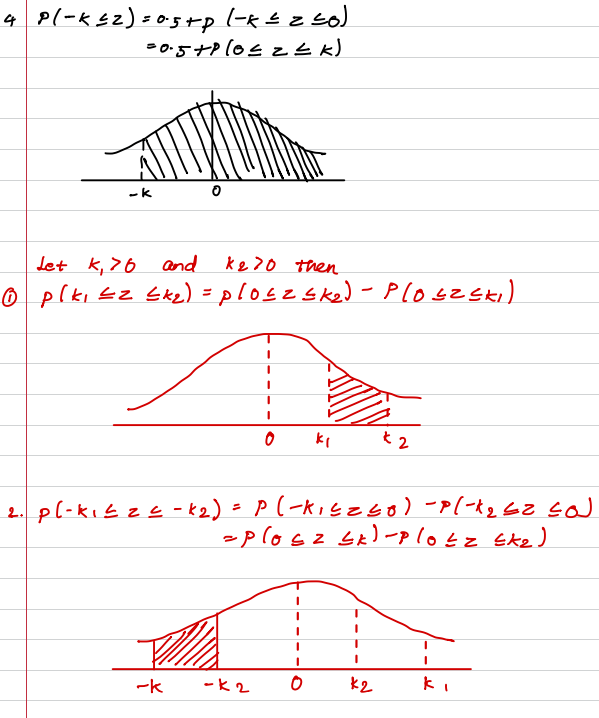 4 P(-k ≤ z) = 0.5 + p (-k ≤ z ≤ 0)
= 0.5 + P(0 ≤ z ≤ k)
-k 0
Let k₁ > 0 and k2 > 0 then
① p(k₁ ≤ z ≤ k2) = p(0 ≤ z ≤ k2) - P(0 ≤ z ≤ k₁)
0 k₁ k2
2. p(-k₁ ≤ z ≤ -k2) = P(-k₁ ≤ z ≤ 0) - P(-k2 ≤ z ≤ 0)
= P(0 ≤ z ≤ k) - P(0 ≤ z ≤ k2)
-k -k2 0 k2 k1